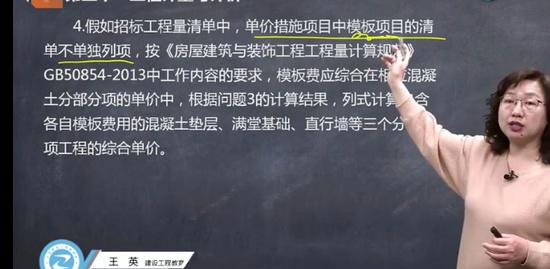 4.假如招标工程量清单中，单价措施项目中模板项目的清
单不单独列项，按《房屋建筑与装饰工程工程量计算规
GB50854-2013中工作内容的要求，模板费应综合在相
土分部分项的单价中，根据问题3的计算结果，列式计算
各自模板费用的混凝土垫层、满堂基础、直行墙等三个分
项工程的综合单价。
王 英 建设工程教育